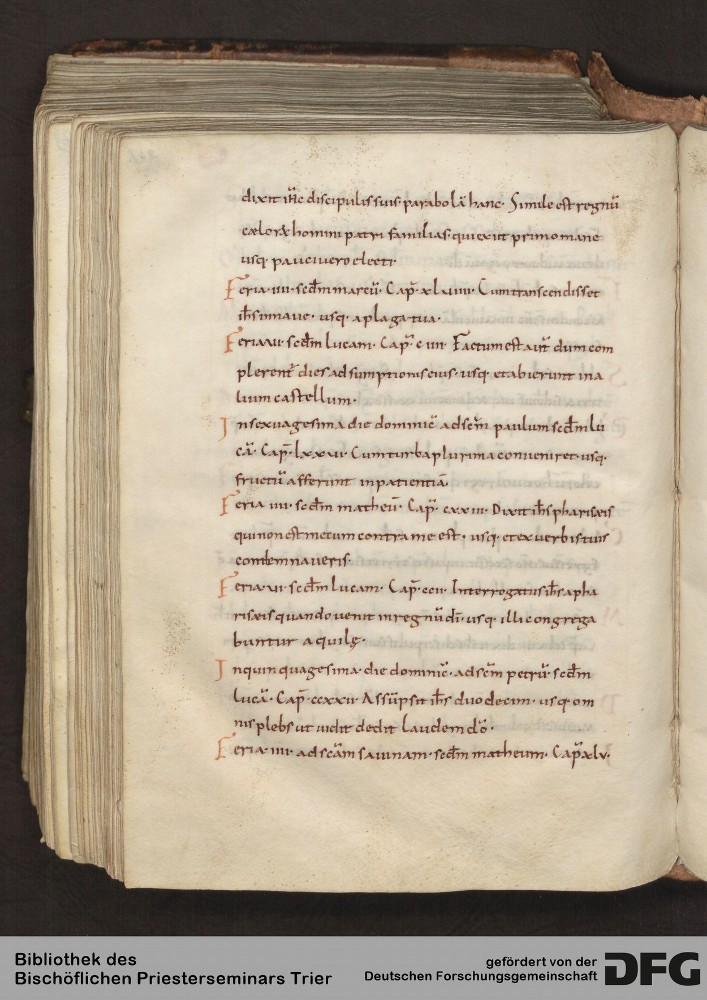 dixit ih̄c discipulis suis parabolā hanc. Simile est regnū
cælorꝝ homini patri familias. qui exiit primo mane
usq. pauci vero electi.
Feria. iiii. scd̄m marcū. Cap̄. xlviiii. Cum transcendisset
ih̄s in nave. usq. a plaga tua.
Feria. vi. scd̄m lucam. Cap̄. c iiii. Factum est aūt dum com
plerent̄ dies adsumptionis eius. usq. et abierunt in a
lium castellum.
In sexuagesima die dominic̄ ad sc̄m paulum scd̄m lu
cā. Cap̄. lxxvi. Cum turba plurima conveniret. usq.
fructū afferunt in patientiā.
Feria. iiii. scd̄m matheū. Cap̄. cxxiii. Dixit ih̄s phariseis
qui non est mecum contra me est. usq. et ex verbis tuis
condemnaveris.
Feria. vi. scd̄m lucam. Cap̄. ccii. Interrogatus ih̄s a pha
riseis quando venit in regnū dī. usq. illi congrega
buntur aquilę.
In quinquagesima. die dominic̄. ad sc̄m petrū. scd̄m
lucā. Cap̄. ccxxii. Assūpsit ih̄s duodecim. usq. om
nis plebs ut vidit dedit laudem dō.
Feria. iiii. ad scām savinam. scd̄m matheum. Cap̄. xlv.
Bibliothek des
Bischöflichen Priesterseminars Trier
gefördert von der
Deutschen Forschungsgemeinschaft
DFG